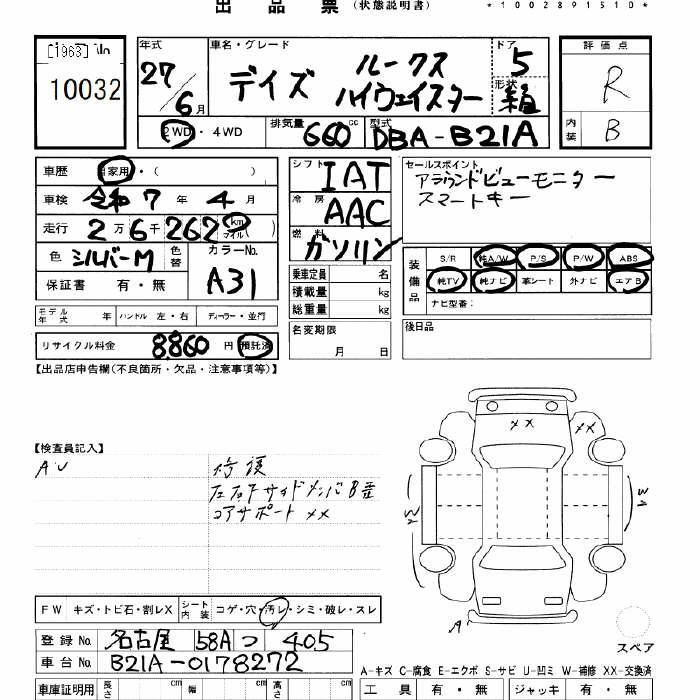 出品票 (状態説明書) *1002891510*
[1963]
10032
年式 27/6月
車名・グレード デイズ ルークス ハイウェイスター
ドア 5
形状 箱
2WD・4WD
排気量 660 cc
型式 DBA-B21A
評価点 R
内装 B
車歴 自家用・( )
車検 令和 7年 4月
走行 2万6千262 km マイル
色 シルバーM 色替
カラーNo. A31
保証書 有・無
シフト IAT
冷房 AAC
燃料 ガソリン
乗車定員 名
積載量 kg
総重量 kg
名変期限 月 日
セールスポイント
アラウンドビューモニター
スマートキー
装備品
S/R 純A/W P/S P/W ABS
純TV 純ナビ 革シート 外ナビ エアB
ナビ型番:
後日品
モデル年式 年 ハンドル 左・右 ディーラー・並行
リサイクル料金 8860 円 預託済
【出品店申告欄(不良箇所・欠品・注意事項等)】
【検査員記入】
AU
修復
左右サイドメンバB歪
コアサポート XX
XX
XX
A
スペア
FW キズ・トビ石・割レX シート内装 コゲ・穴・汚レ・シミ・破レ・スレ
登録No. 名古屋 58A つ 405
車台No. B21A-0178272
A-キズ C-腐食 E-エクボ S-サビ U-凹ミ W-補修 XX-交換済
車庫証明用 長さ cm 幅 cm 高さ cm
工具 有・無 ジャッキ 有・無